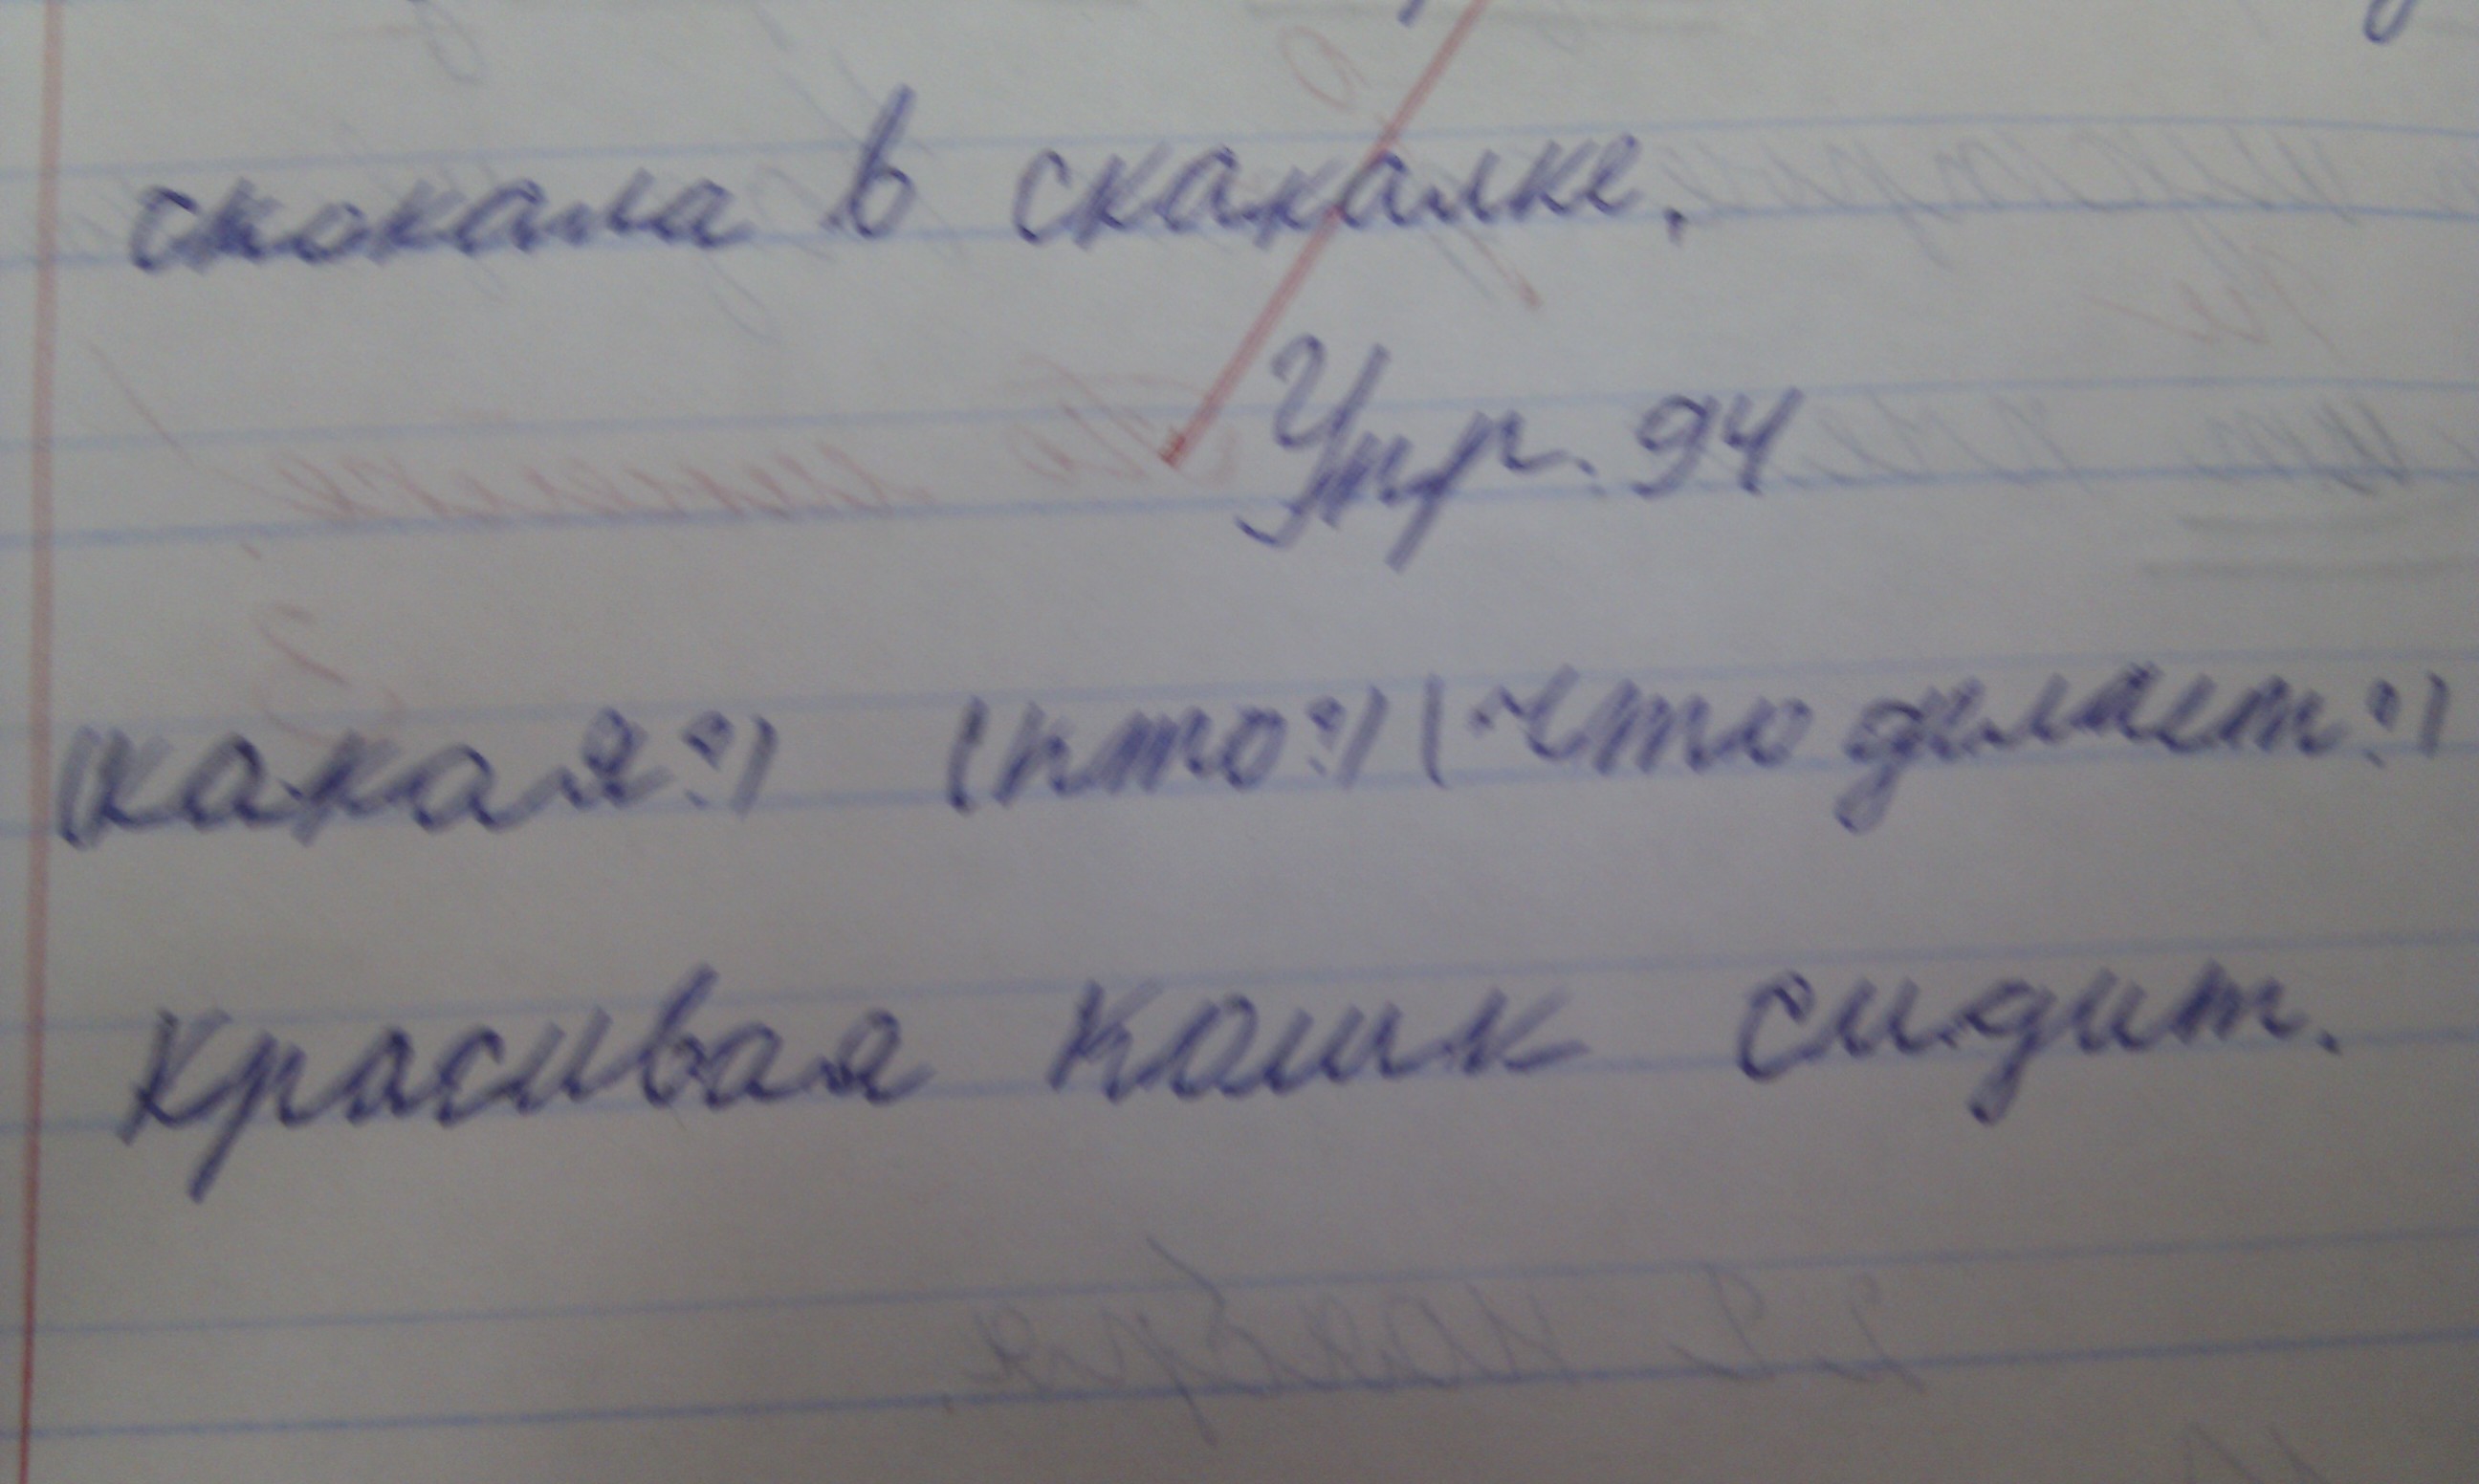 скокала в скакалке.
Упр. 94
(какая?) (кто?) (что делает?)
Красивая кошк сидит.